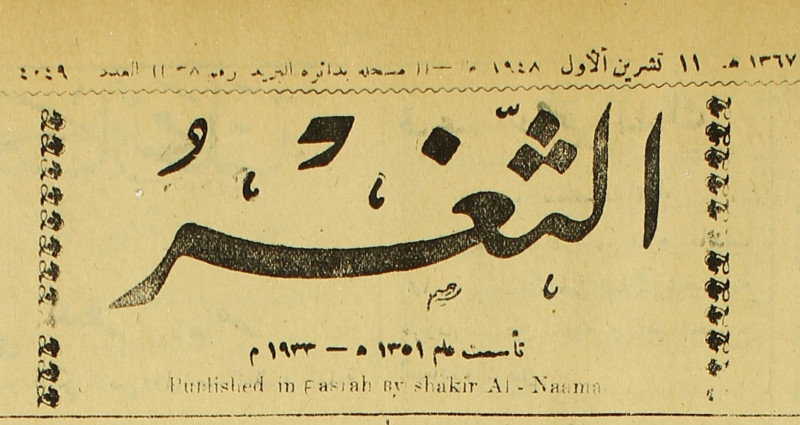 ١٣٦٧ هـ. ١١ تشرين الأول ١٩٤٨ م — ١١ مسجله بدائره البريد رقم ٨ — ١١ العدد ٤٠٤٩
الثَّغْرُ
تأسست عام ١٣٥١ ه — ١٩٣٣ م
Published in Basrah By shakir Al - Naama